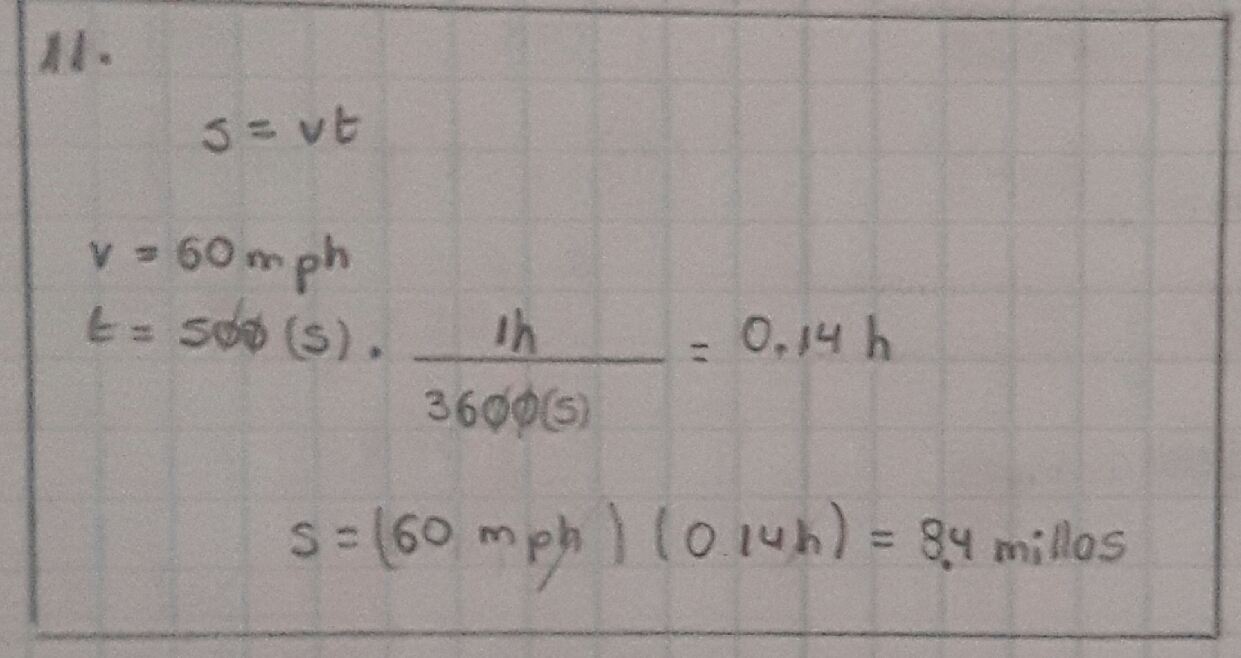 11.
s = vt
v = 60 mph
t = 500 (s) . 1h / 3600(s) = 0.14 h
s = (60 mph) (0.14h) = 8.4 millas